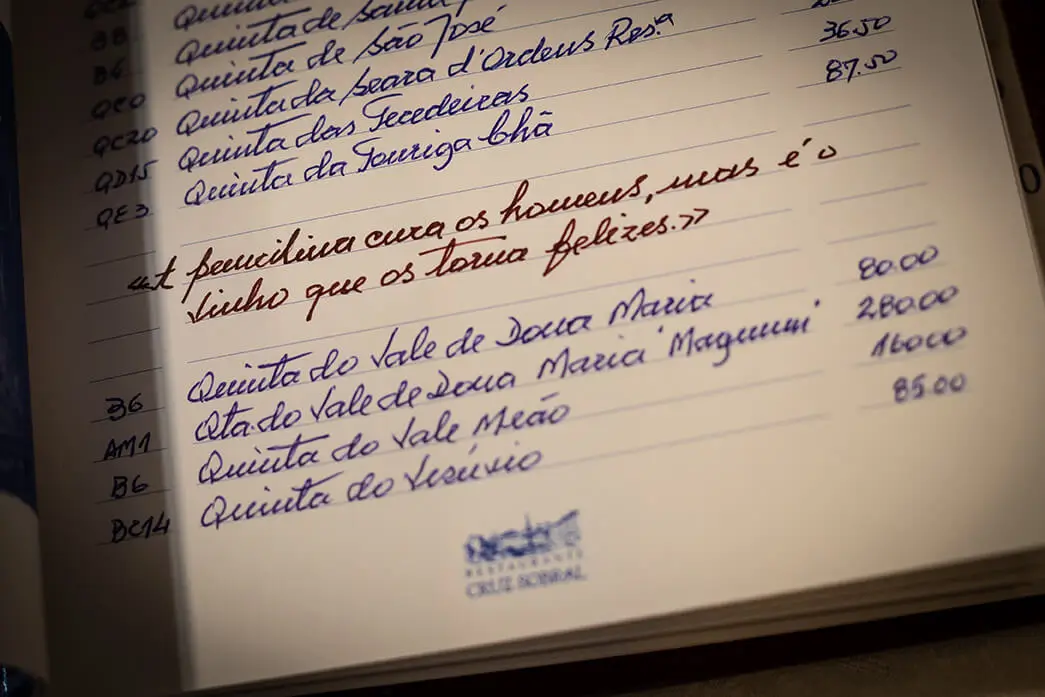 BB Quinta
B6 Quinta de Santa
QC0 Quinta de São José
QC20 Quinta da Seara d'Ordens Res.ª
QD15 Quinta das Tecedeiras 36.50
QE3 Quinta da Touriga Chã 87.50
«A penicilina cura os homens, mas é o
vinho que os torna felizes.»
B6 Quinta do Vale de Dona Maria 80.00
AM1 Qta. do Vale de Dona Maria 'Magnum' 280.00
B6 Quinta do Vale Meão 160.00
BC14 Quinta do Vesúvio 85.00
RESTAURANTE
CRUZ SOBRAL